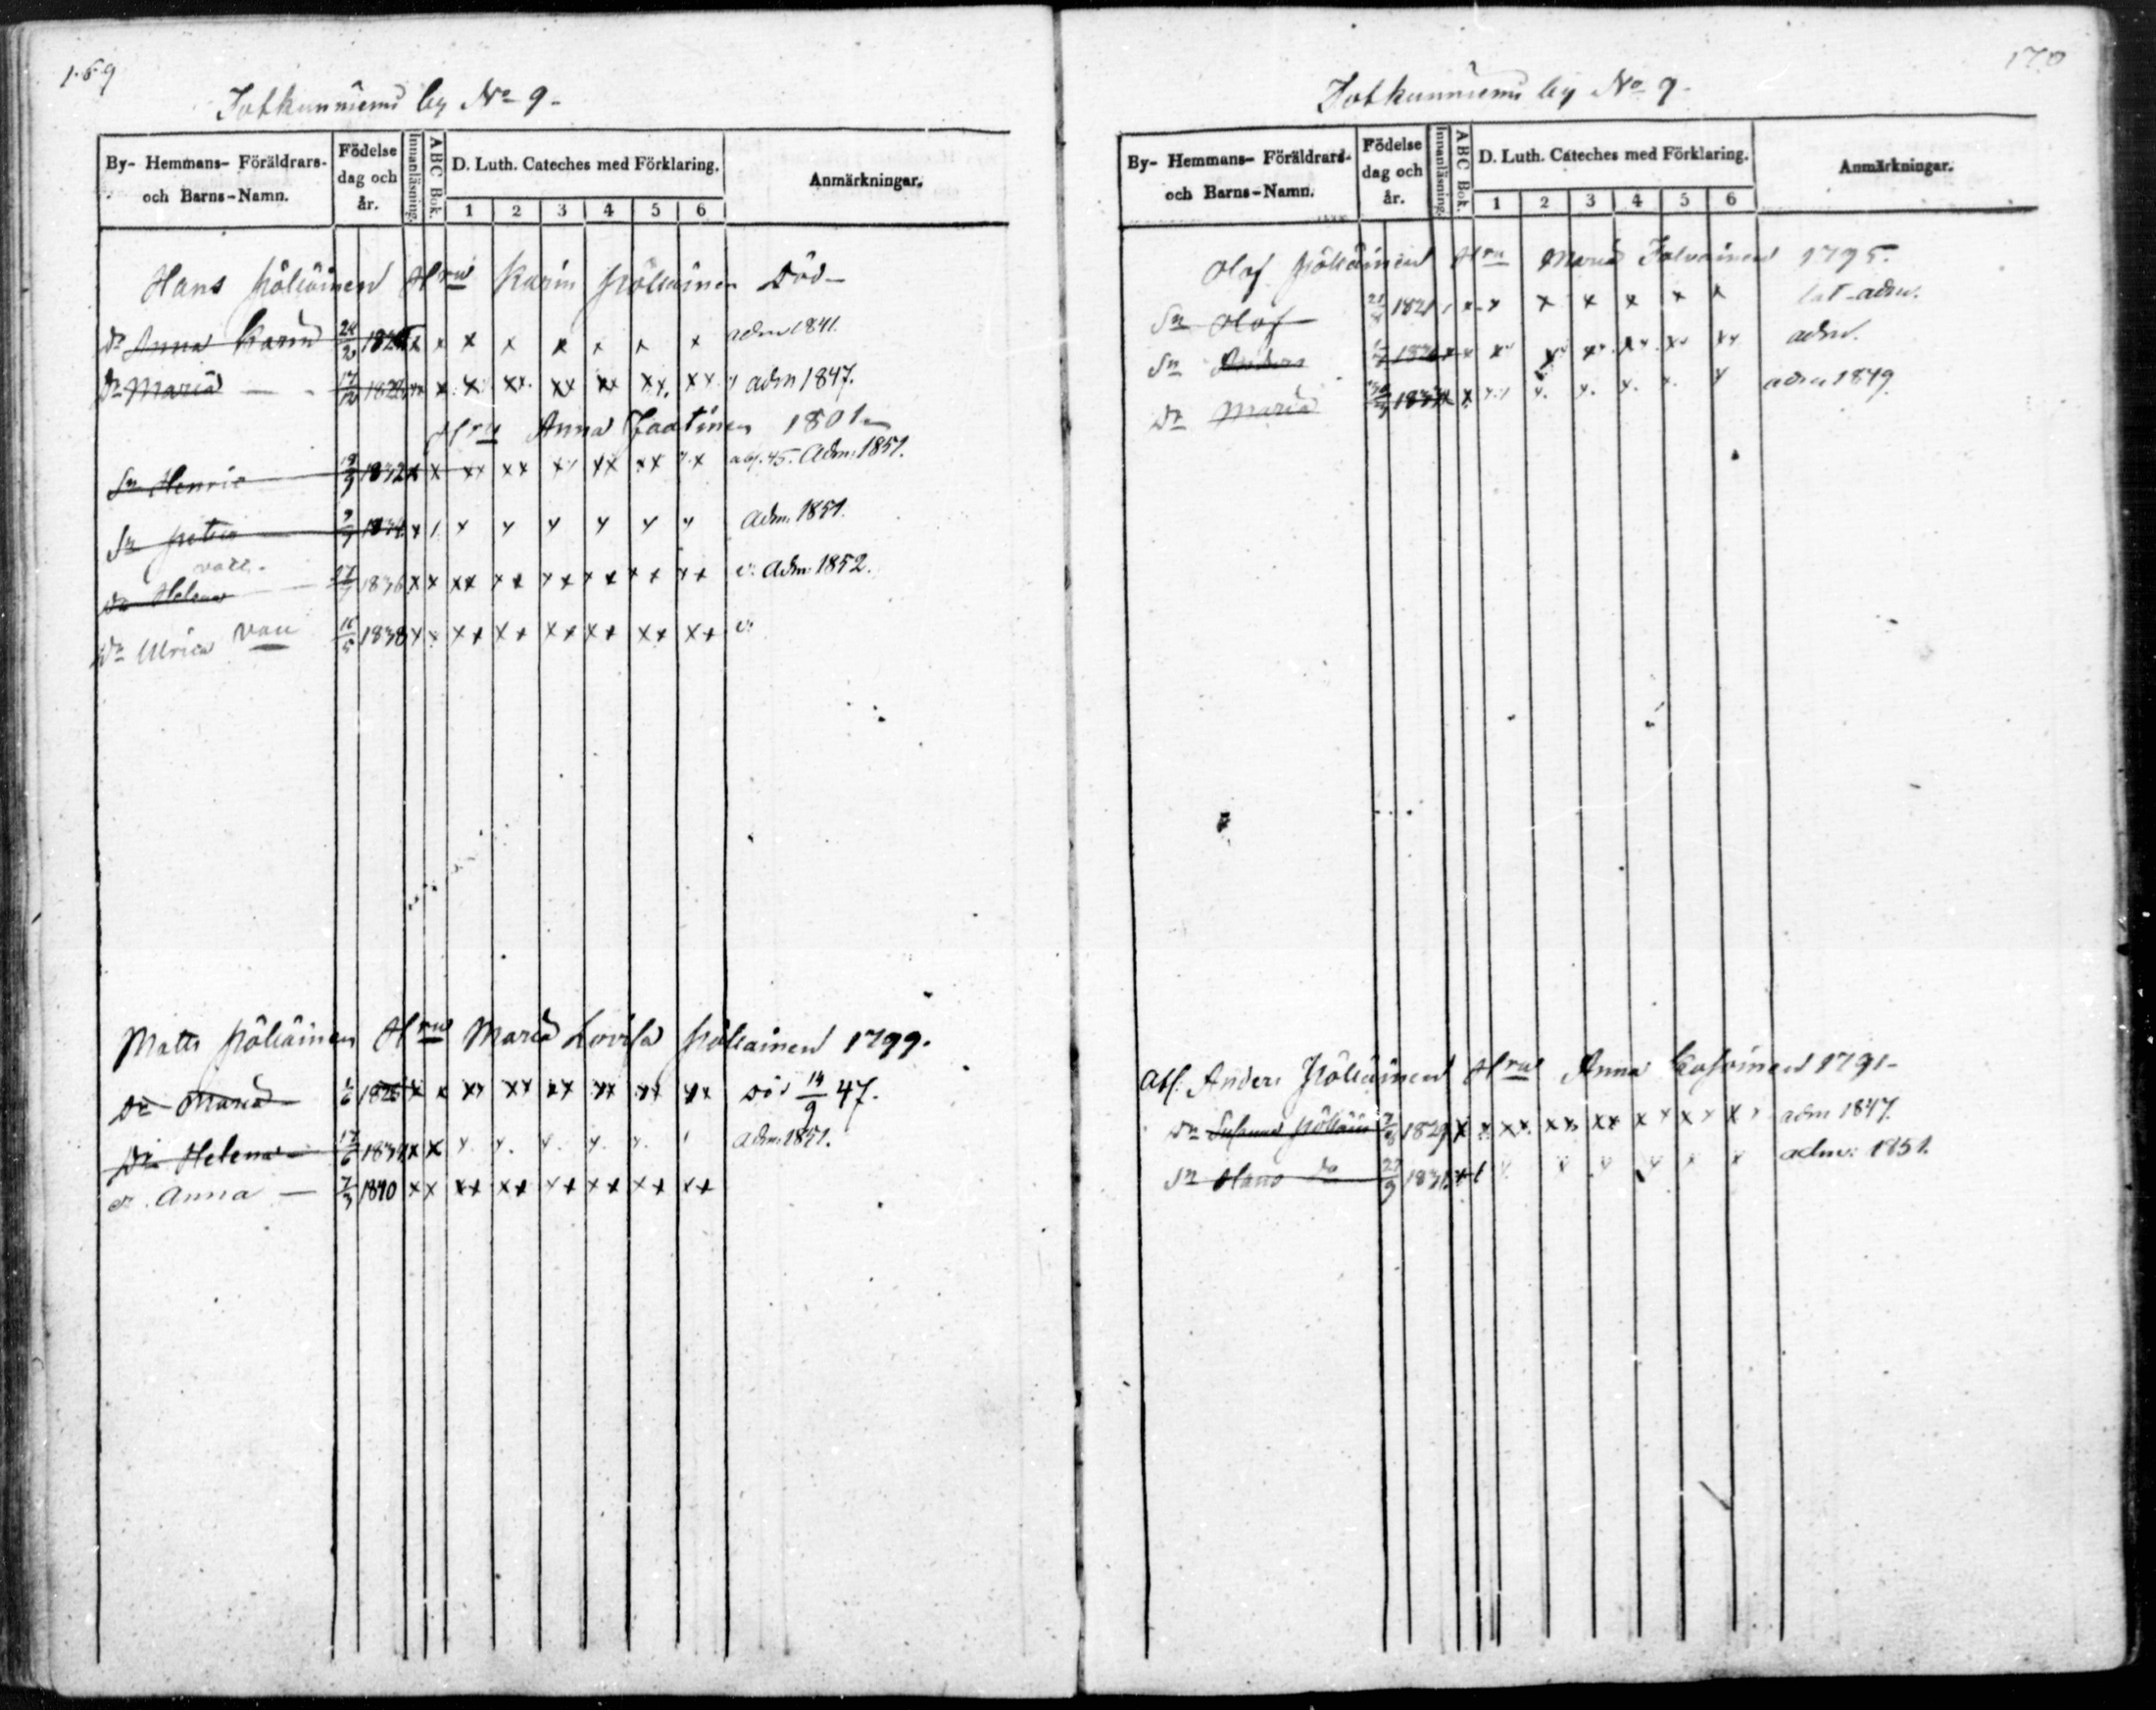 169
by No 9.
By- Hemmans- Föräldrars- och Barns-Namn.
Födelse dag och år.
Innanläsning.
ABC Bok.
D. Luth. Cateches med Förklaring.
1 2 3 4 5 6
Anmärkningar.
Hans Pöllöinen Hru Karin Pöllöinen Död
Dr Anna Karin x x x x x x x x adm 1841.
Dr Maria 17/12 xx x x xx xx xx xx xx adm 1847.
Hru Anna Jaatinen 1801
Sn Henric 1832 x x xx xx xx xx xx xx 45. Adm: 1851.
Sn Petter 1834 x x x x x x x Adm. 1851.
vacc.
Dr Helena 1836 x x xx xx xx xx xx xx v. Adm: 1852.
Dr Ulrica vacc 1838 x x xx xx xx xx xx xx v.
Matts Pöllöinen Hru Maria Lovisa Pöllöinen 1799.
Dr Maria x x xx xx xx xx xx xx Död 14/9 47.
Dr Helena 17/6 1834 x x x x x x x Adm. 1851.
Dr. Anna 7/3 1840 xx xx xx xx xx xx xx
170
by No 9.
By- Hemmans- Föräldrars- och Barns-Namn.
Födelse dag och år.
Innanläsning.
ABC Bok.
D. Luth. Cateches med Förklaring.
1 2 3 4 5 6
Anmärkningar.
Olof Pöllöinen Hru Maria 1795.
Sn Olof 1821 x x x x x x x adm.
Sn Anders x x x xx xx xx xx xx adm.
Dr Maria x x x x x x x adm 1849.
Anders Pöllöinen Hru Anna 1791
Dr Susanna Pöllöin 1829 x x xx xx xx xx xx xx adm 1847.
Sn Hans do x x x x x x adm: 1851.